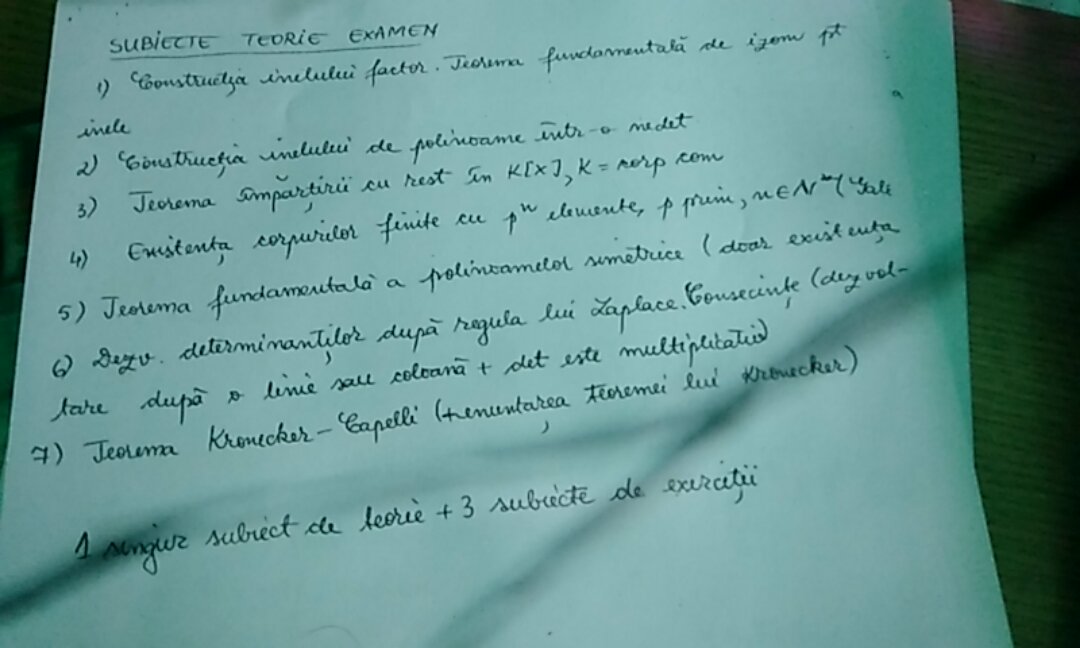 SUBIECTE TEORIE EXAMEN
1) Construcția inelului factor. Teorema fundamentală de izom pt
inele
2) Construcția inelului de polinoame într-o nedet
3) Teorema împărțirii cu rest în K[X], K = corp com
4) Existența corpurilor finite cu pⁿ elemente, p prim, n∈N* (
5) Teorema fundamentală a polinoamelor simetrice (doar existența
6) Dezv. determinanților după regula lui Laplace. Consecințe (dezvol-
tare după o linie sau coloană + det este multiplicativ)
7) Teorema Kronecker-Capelli (+enunțarea teoremei lui Kronecker)
1 singur subiect de teorie + 3 subiecte de exerciții